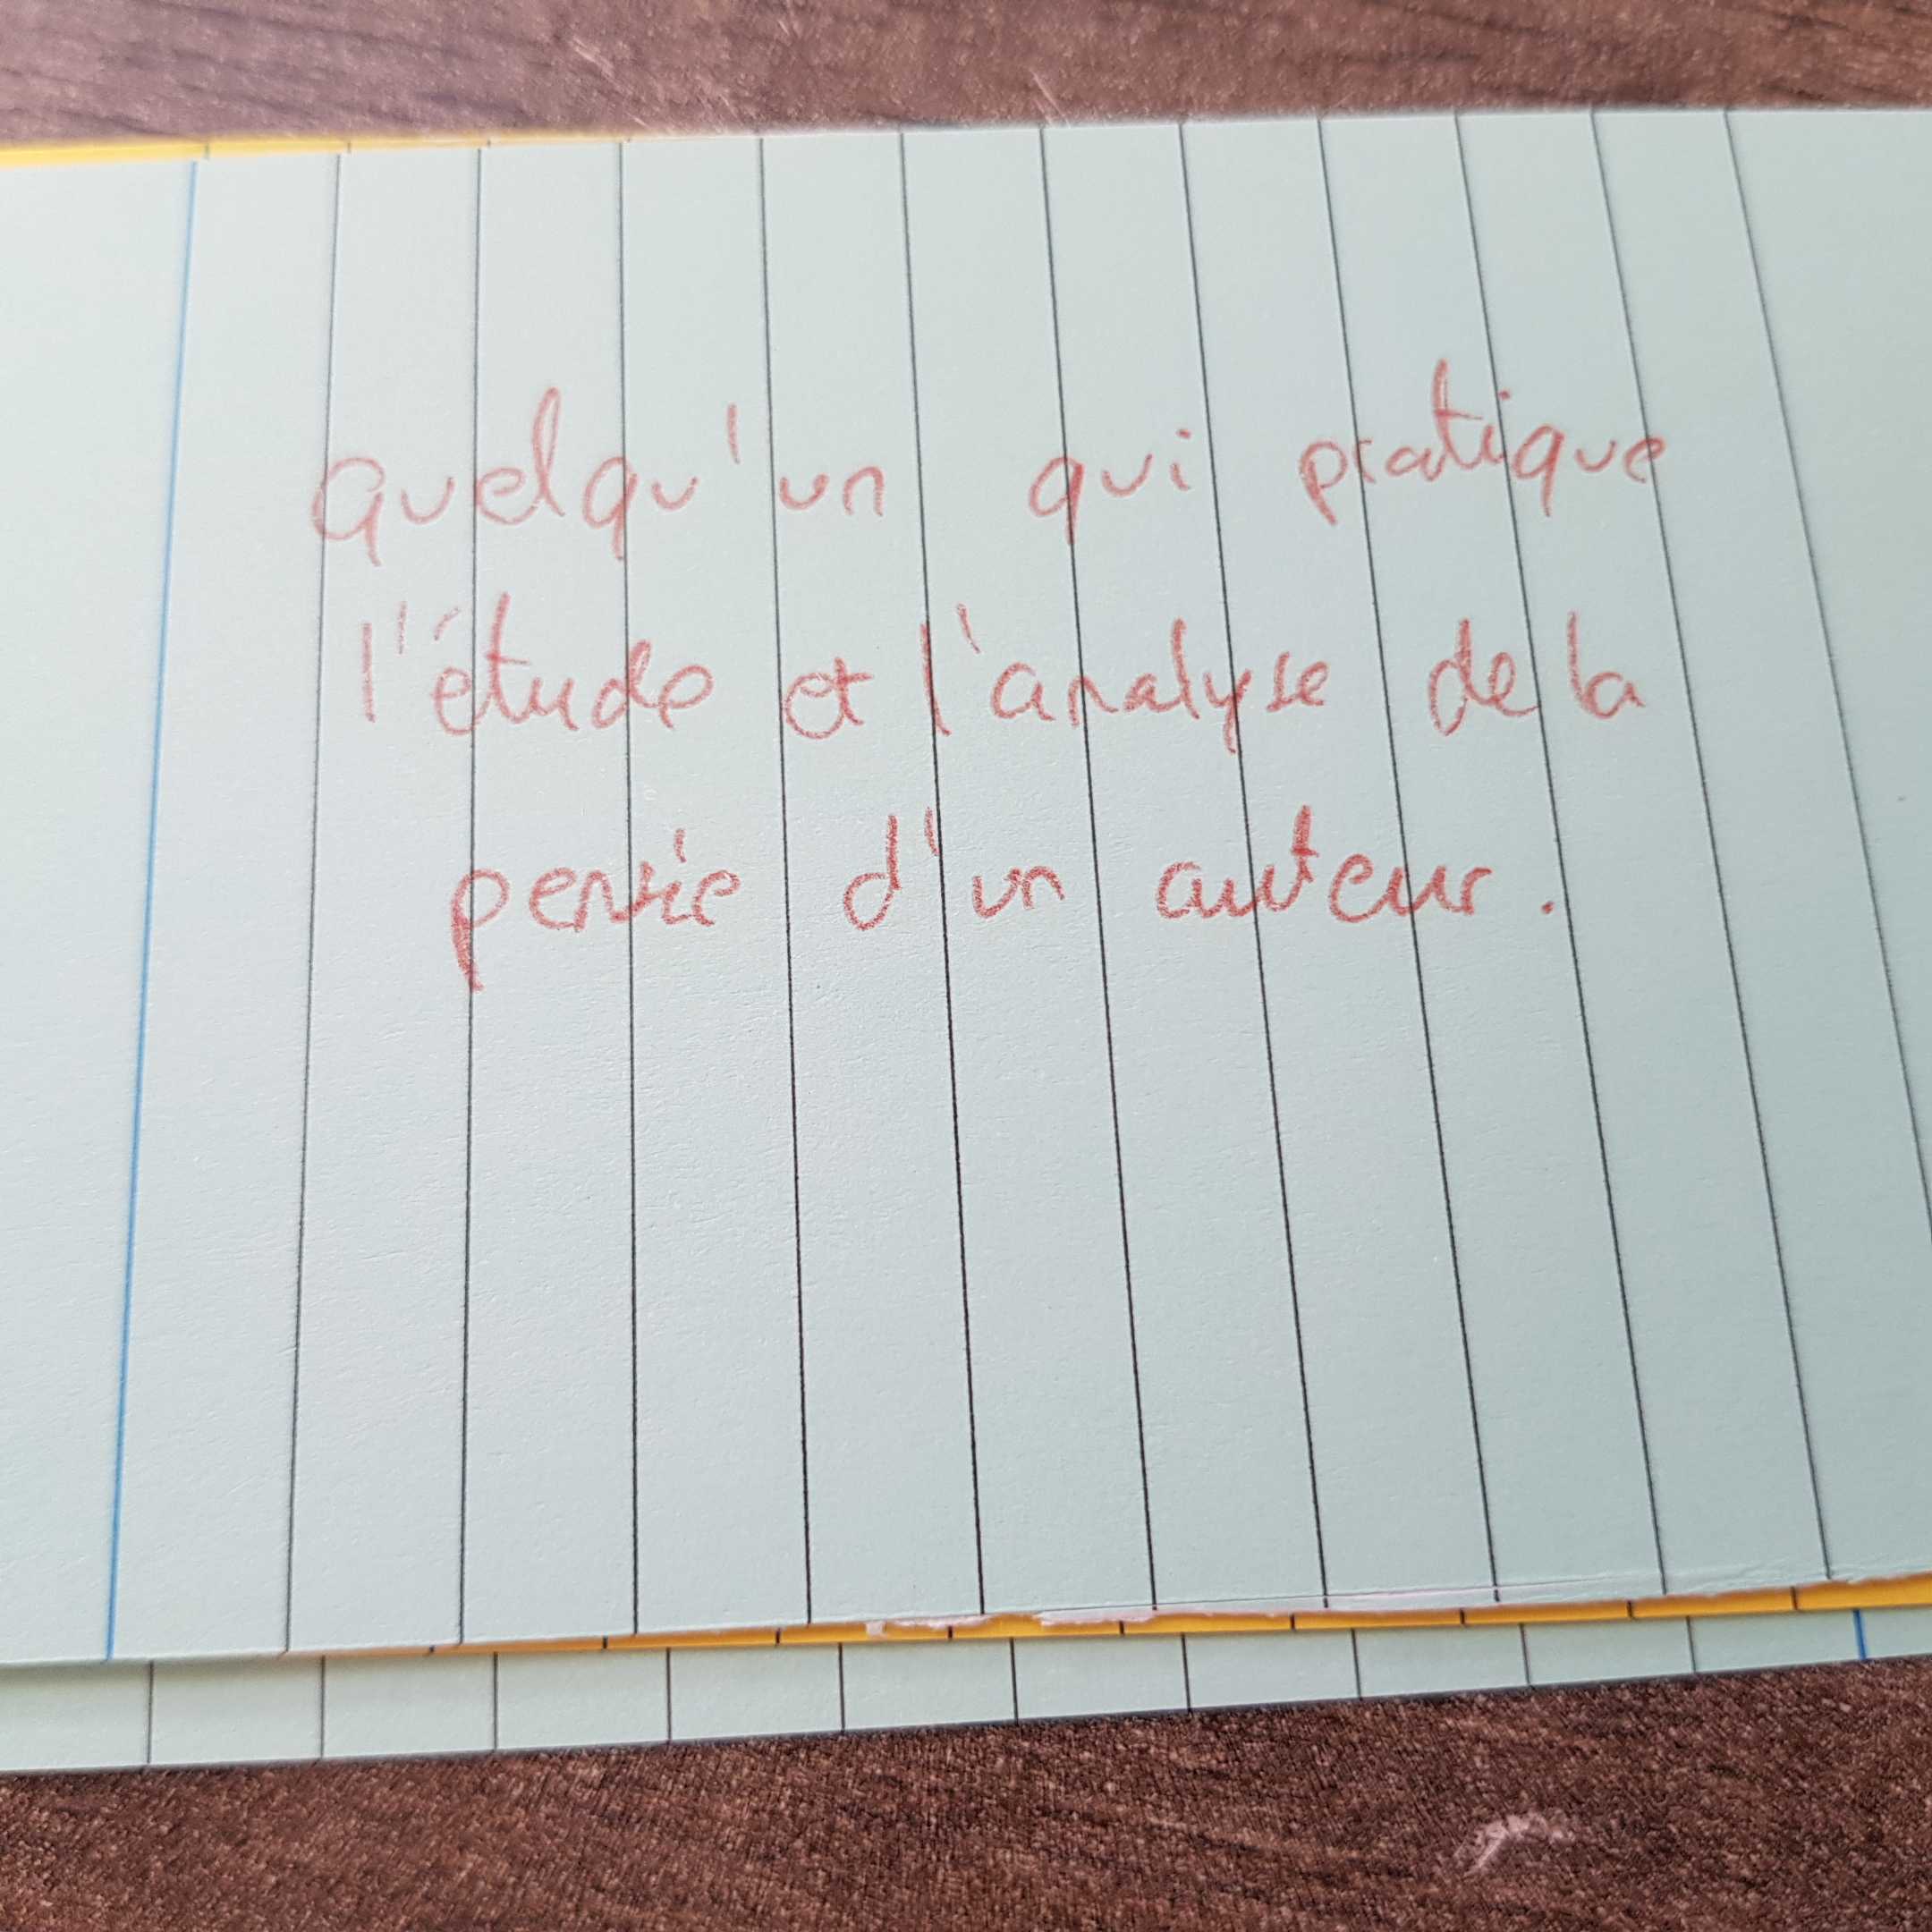 Quelqu'un qui pratique
l'étude et l'analyse de la
pensée d'un auteur.